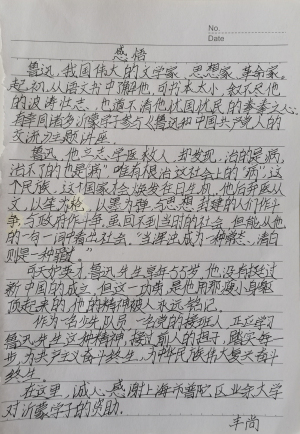 No.
Date
感悟
鲁迅,我国伟大的文学家、思想家、革命家。
起初,从语文书中了解他,可书本太小,叙不尽他
的波涛壮志,也道不清他忧国忧民的拳拳之心。
有幸同诸多沂蒙学子参与《鲁迅和中国共产党人的
交流》主题讲座。
鲁迅,他立志学医救人,却发现,治的是病,
治不了的也是病”唯有根治这社会上的“病”,这
个民族,这个国家才会焕发在日生机。他后弃医从
文,以笔为枪,以墨为弹,与思想封建的人们作斗
争,与政府作斗争,虽回不到当时的社会,但能从他
的一句一词中看出社会,“当浑浊成为一种常态,清白
则是一种罪。”
可天妒英才,鲁迅先生享年55岁,他没有挨过
新中国的成立,但这一功勋,是他用那瘦小身躯
顶起来的,他的精神被人永远铭记。
作为一名少年队员,一名党的接班人,正应学习
鲁迅先生这种精神,接过前人的担子,踏实每一
步,为共产主义奋斗终生,为中华民族伟大复兴奋斗
终生。
在这里,诚心感谢上海市普陀区业余大学
对沂蒙学子的资助。
丰尚